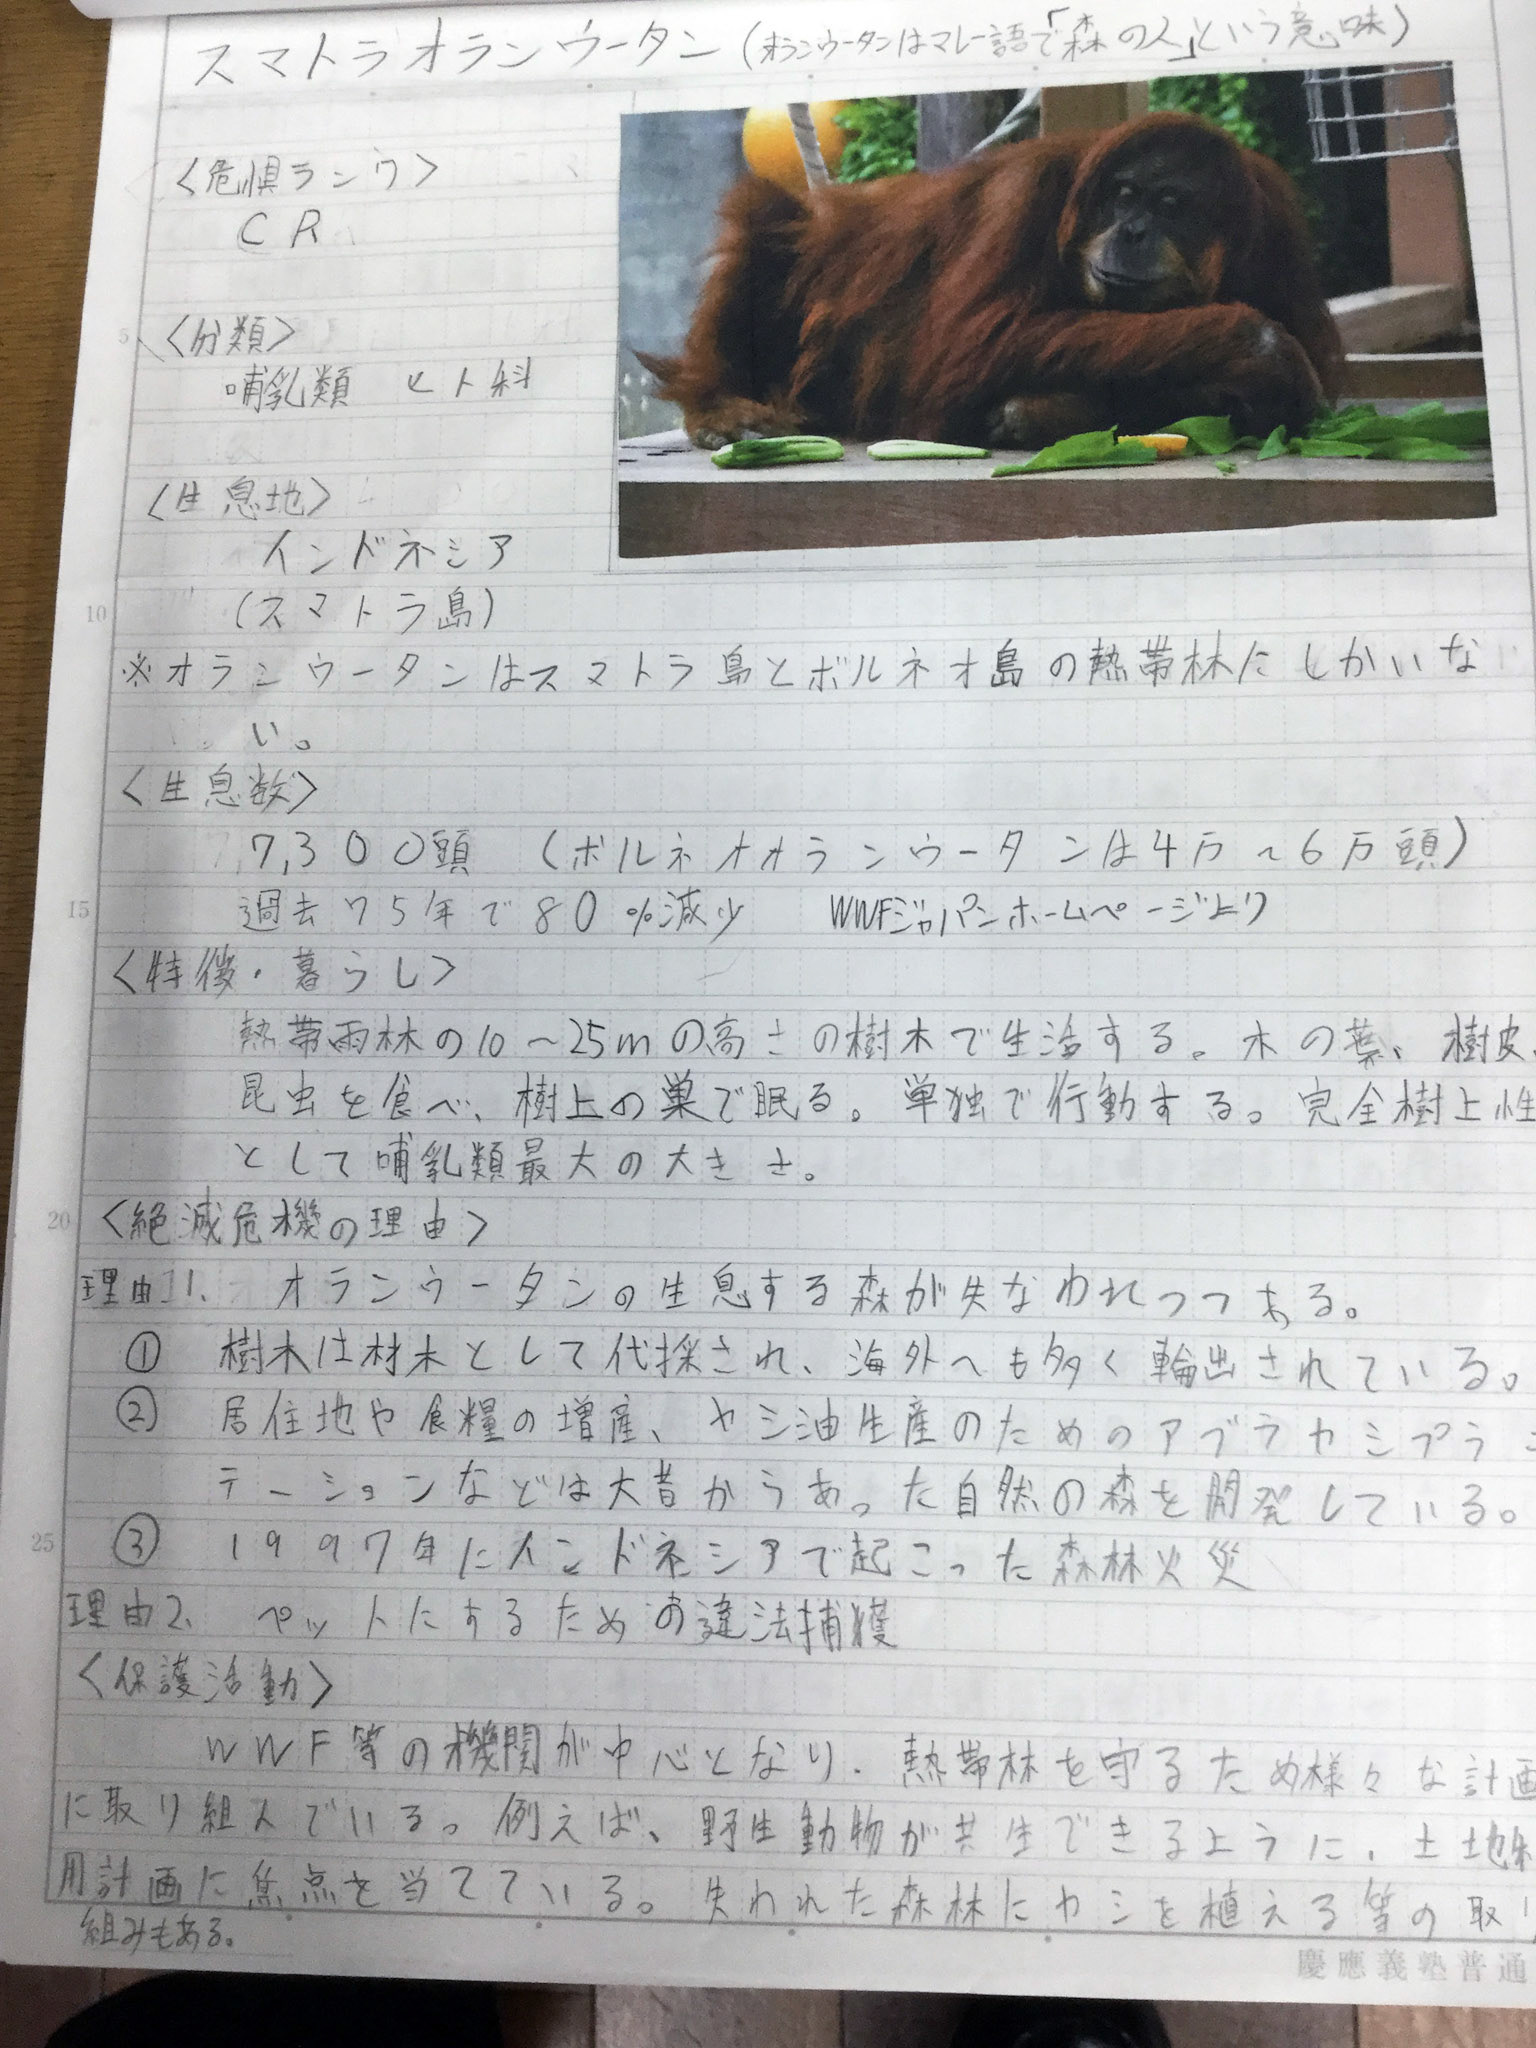 スマトラオランウータン(オランウータンはマレー語で「森の人」という意味)
〈危惧ランク〉
CR
5
〈分類〉
哺乳類 ヒト科
〈生息地〉
インドネシア
10
(スマトラ島)
※オランウータンはスマトラ島とボルネオ島の熱帯林にしかいな
い。
〈生息数〉
7,300頭 (ボルネオオランウータンは4万~6万頭)
15
過去75年で80%減少 WWFジャパンホームページより
〈特徴・暮らし〉
熱帯雨林の10~25mの高さの樹木で生活する。木の葉、樹皮、
昆虫を食べ、樹上の巣で眠る。単独で行動する。完全樹上性
として哺乳類最大の大きさ。
20
〈絶滅危機の理由〉
理由1. オランウータンの生息する森が失なわれつつある。
① 樹木は材木として代採され、海外へも多く輪出されている。
② 居住地や食糧の増産、ヤシ油生産のためのアブラヤシプラン
テーションなどは大昔からあった自然の森を開発している。
25
③ 1997年にインドネシアで起こった森林火災
理由2. ペットにするための違法捕獲
〈保護活動〉
WWF等の機関が中心となり、熱帯林を守るため様々な計画
に取り組んでいる。例えば、野生動物が共生できるように、土地利
用計画に焦点を当てている。失われた森林にヤシを植える等の取り
組みもある。
慶應義塾普通